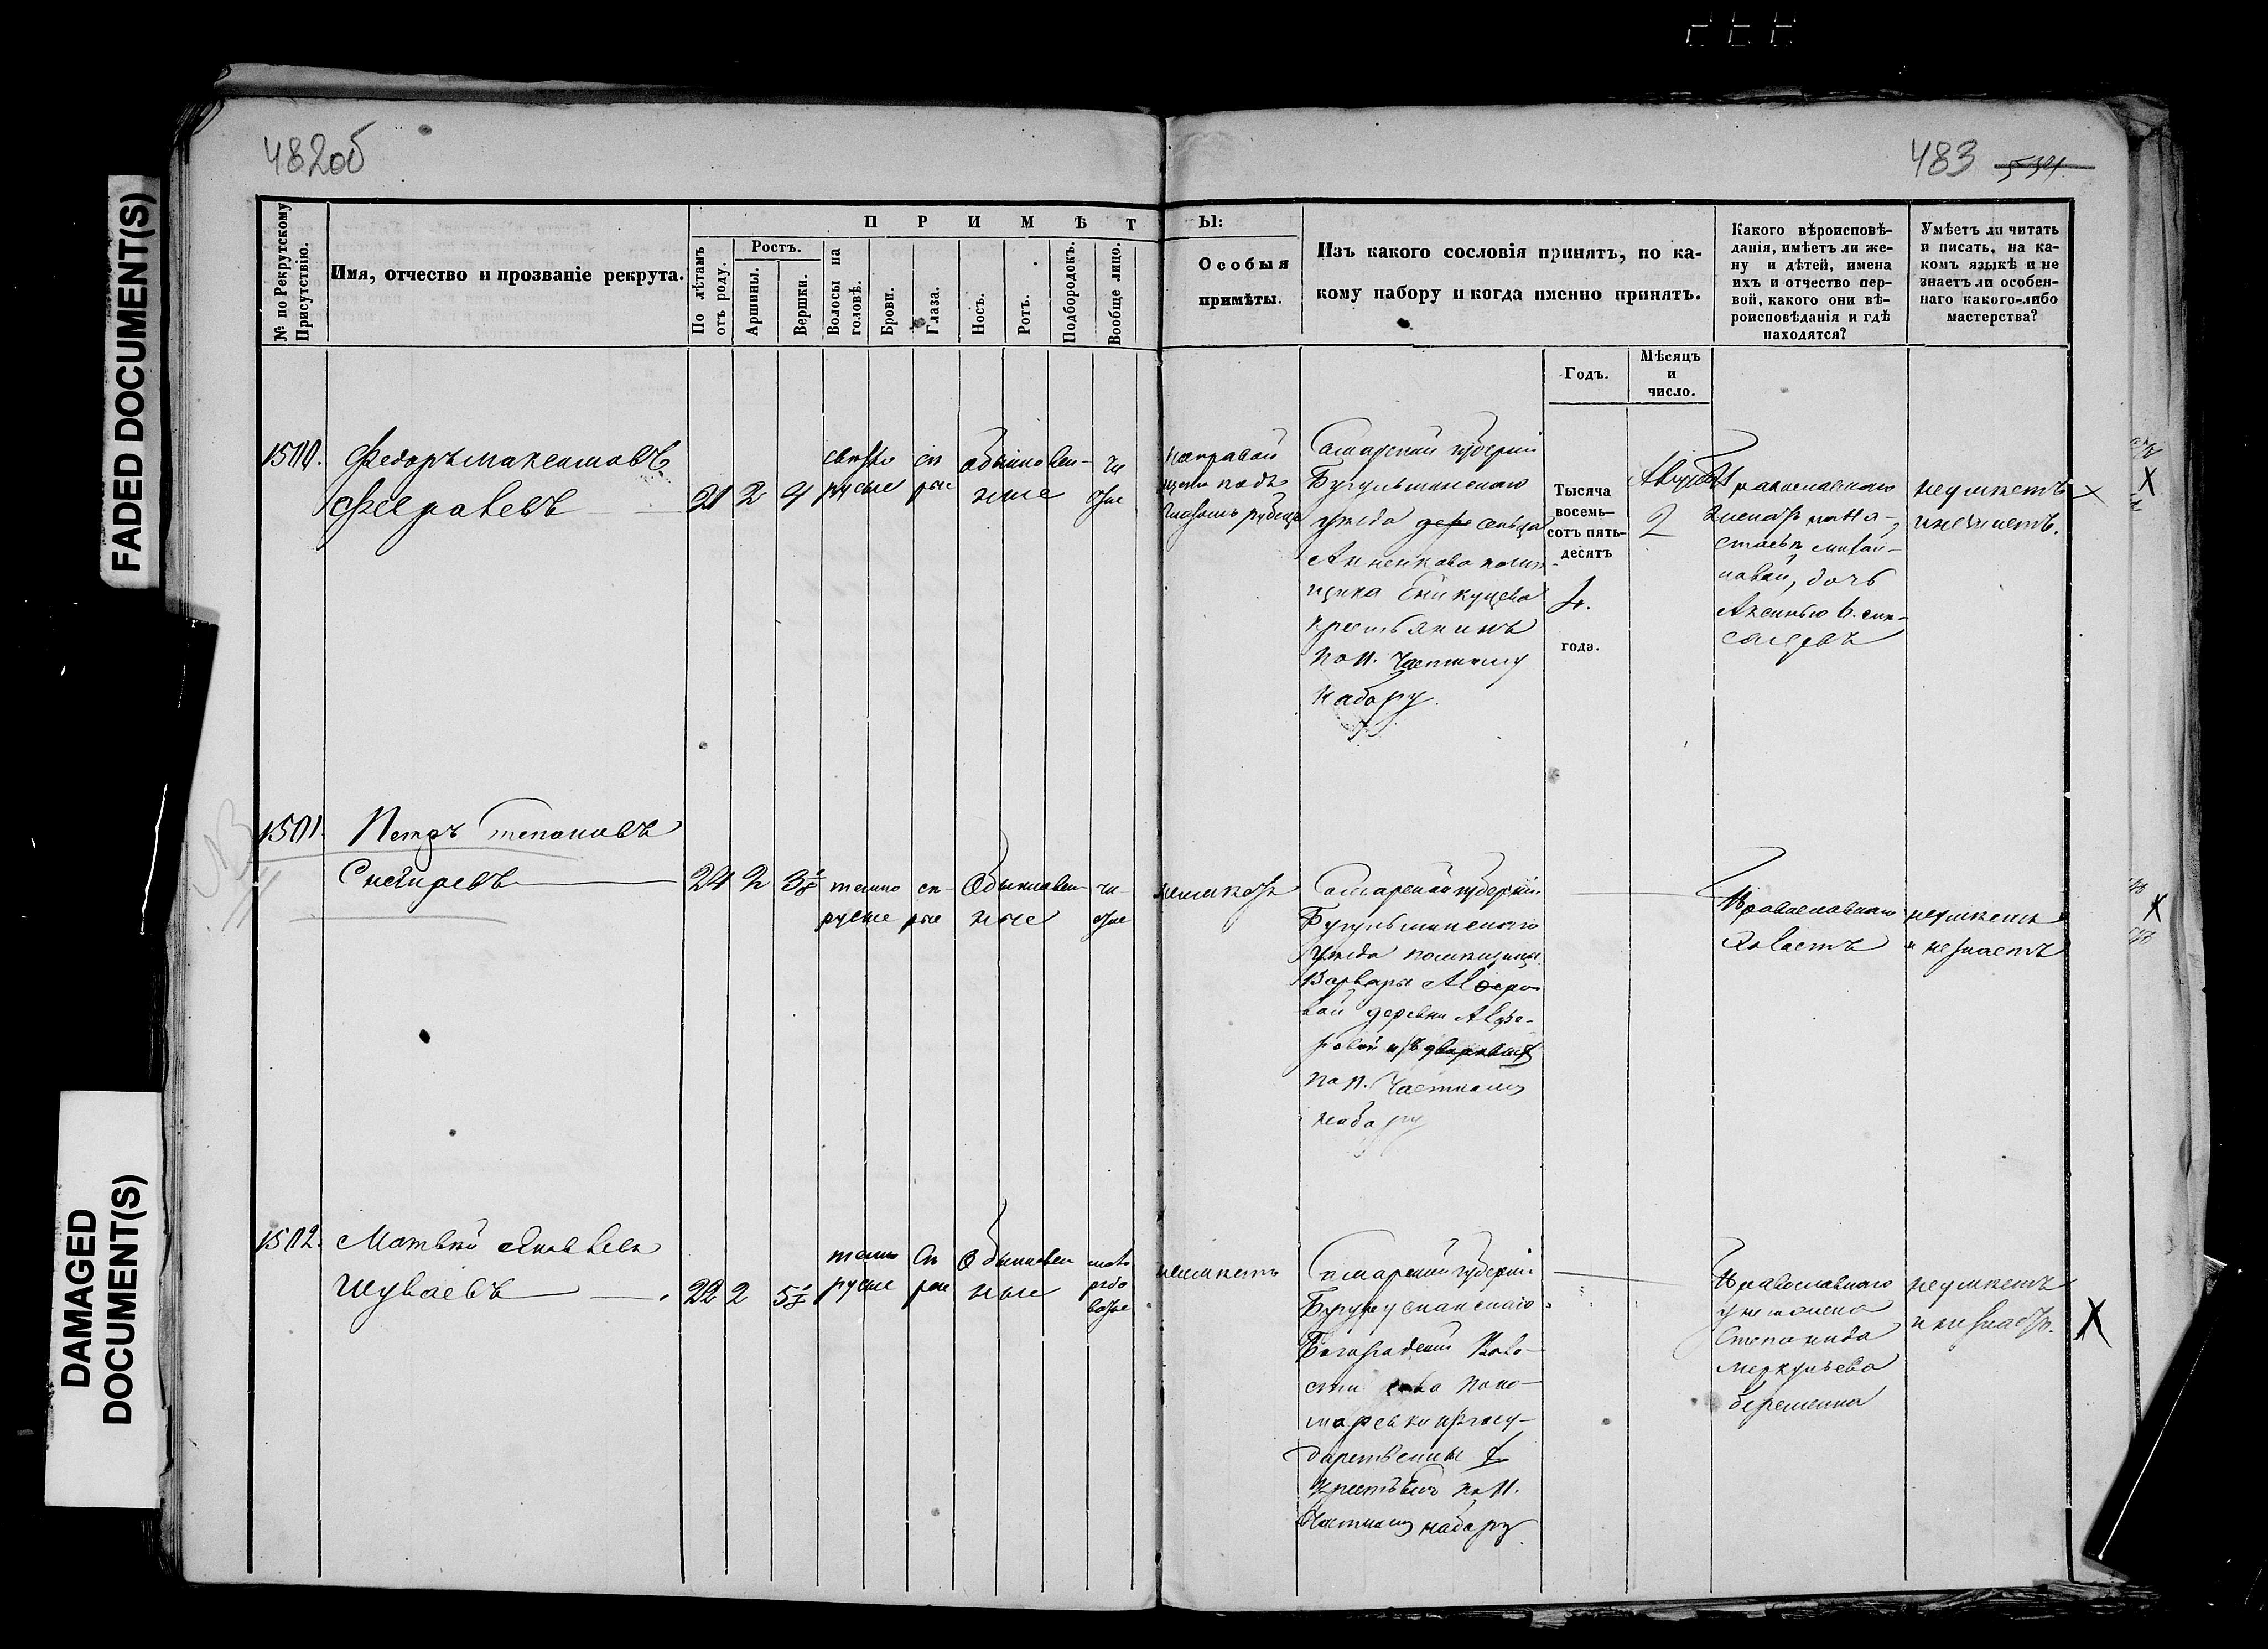 FADED DOCUMENT(S)
DAMAGED
DOCUMENT(S)
482об
483 534.
№ по Рекрутскому
Присутствію.
Имя, отчество и прозваніе рекрута.
П Р И М Ѣ Т Ы:
По лѣтамъ
отъ роду.
Ростъ.
Аршины.
Вершки.
Волосы на
головѣ.
Брови.
Глаза.
Носъ.
Ротъ.
Подбородокъ.
Вообще лицо.
Особыя
примѣты.
Изъ какого сословія принятъ, по ка-
кому набору и когда именно принятъ.
Годъ.
Мѣсяцъ
и
число.
Какого вѣроисповѣ-
данія, имѣетъ ли же-
ну и дѣтей, имена
ихъ и отчество пер-
вой, какого они вѣ-
роисповѣданія и гдѣ
находятся?
Умѣетъ ли читать
и писать, на ка-
комъ языкѣ и не
знаетъ ли особен-
наго какого-либо
мастерства?
1500. Федоръ Максимовъ
21 2 4
свѣтло
русые
сѣ
рые
обыкновен-
ные
чи
стое
на правой
щекѣ подъ
глазомъ рубецъ
Самарской губерніи
Бугульминскаго
уѣзда сельца
Анненкова помѣ-
щика
крестьянинъ
по 11. Частному
набору.
Тысяча
восемь-
сотъ пять-
десятъ
4.
года.
Августа
2
Православнаго
женатъ на На-
стасьѣ Михай-
ловой, дочь
Аксинью
неумѣетъ
и незнаетъ.
1501. Петръ Степановъ
Снегиревъ
24 2 3 1/8
темно
русые
сѣ-
рые
Обыкновен
ные
чи-
стое
неимѣетъ
Самарской губерніи
Бугульминскаго
уѣзда помѣщицы
Варвары
вой деревни
изъ дворовыхъ
по 11. Частному
набору
Православнаго
Холостъ
неумѣетъ
и незнаетъ
1502. Матвѣй Яковлевъ
Шуваевъ
22 2 5 1/8
темно
русые
Сѣ
рые
Обыкновен
ные
рябо
ватое
неимѣетъ
Самарской губерніи
Бугурусланскаго
Воло-
сти села Поно-
маревки изъ госу-
дарственныхъ
крестьянъ по 11.
Частному набору
Православнаго
у него жена
Степанида
Меркульева
беременна
неумѣетъ
и незнаетъ.